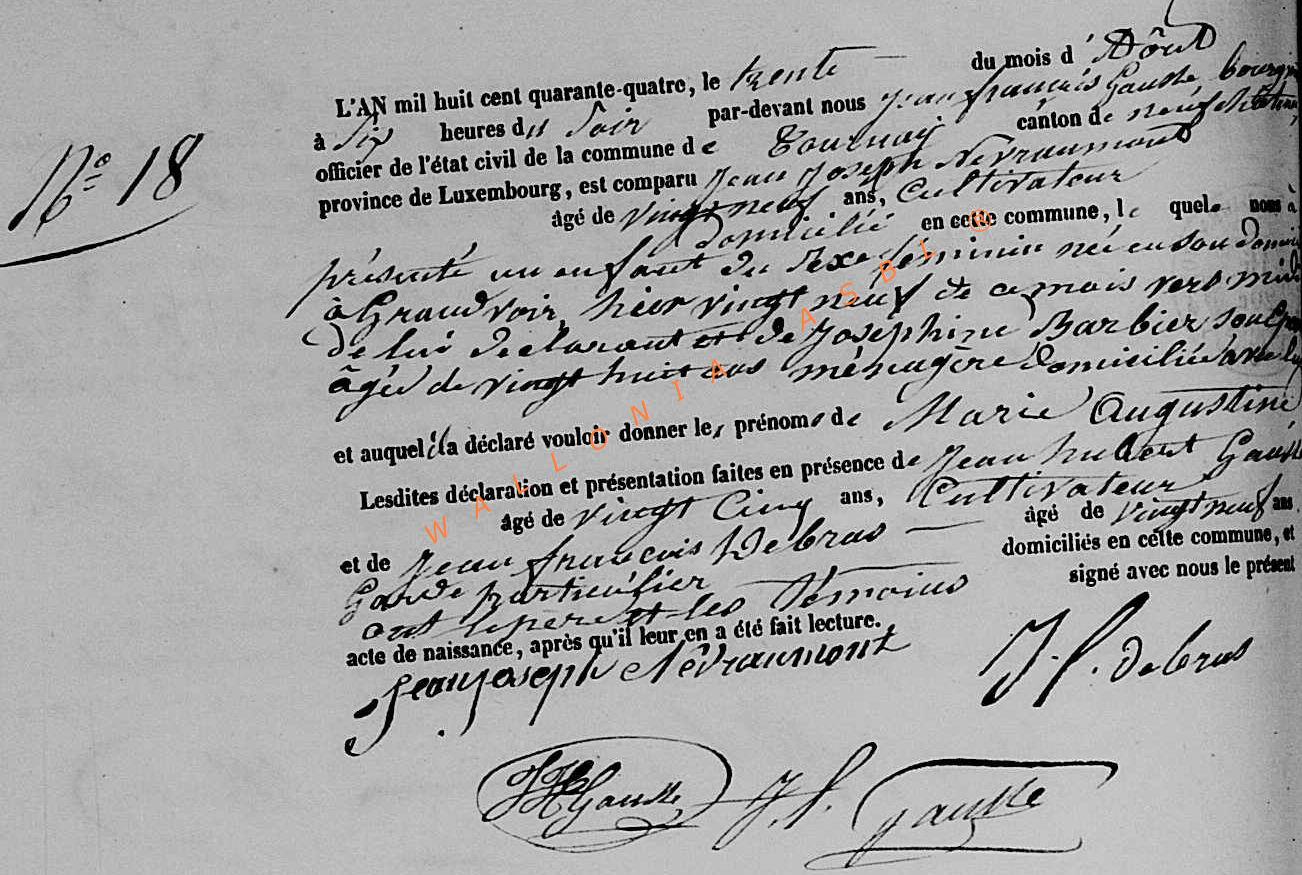 N° 18
L'AN mil huit cent quarante-quatre, le trente du mois d' Aôut
à Six heures du Soir par-devant nous Jean françois Gausse
officier de l'état civil de la commune de Tournay canton de
province de Luxembourg, est comparu Jean Joseph Névraumont
âgé de vingt neuf ans, Cultivateur
domicilié en cette commune, le quel nous à
présenté un enfant du sexe féminin née en son
à Grandvoir, hier vingt neuf de ce mois vers midi
de lui déclarant et de Josephine Barbier son
âgée de vingt huit ans ménagère domiciliée avec lui
et auquel il a déclaré vouloir donner les prénoms de Marie Augustine
Lesdites déclaration et présentation faites en présence de Jean hubert Gausse
âgé de vingt Cinq ans, Cultivateur
et de Jean françois Debras âgé de vingt neuf ans
Garde particulier domiciliés en cette commune, et
ont le père et les Témoins signé avec nous le présent
acte de naissance, après qu'il leur en a été fait lecture.
Jean joseph Névraumont
J. f. debras
JH Gausse J f. Gausse
WALLONIA ASBL ©